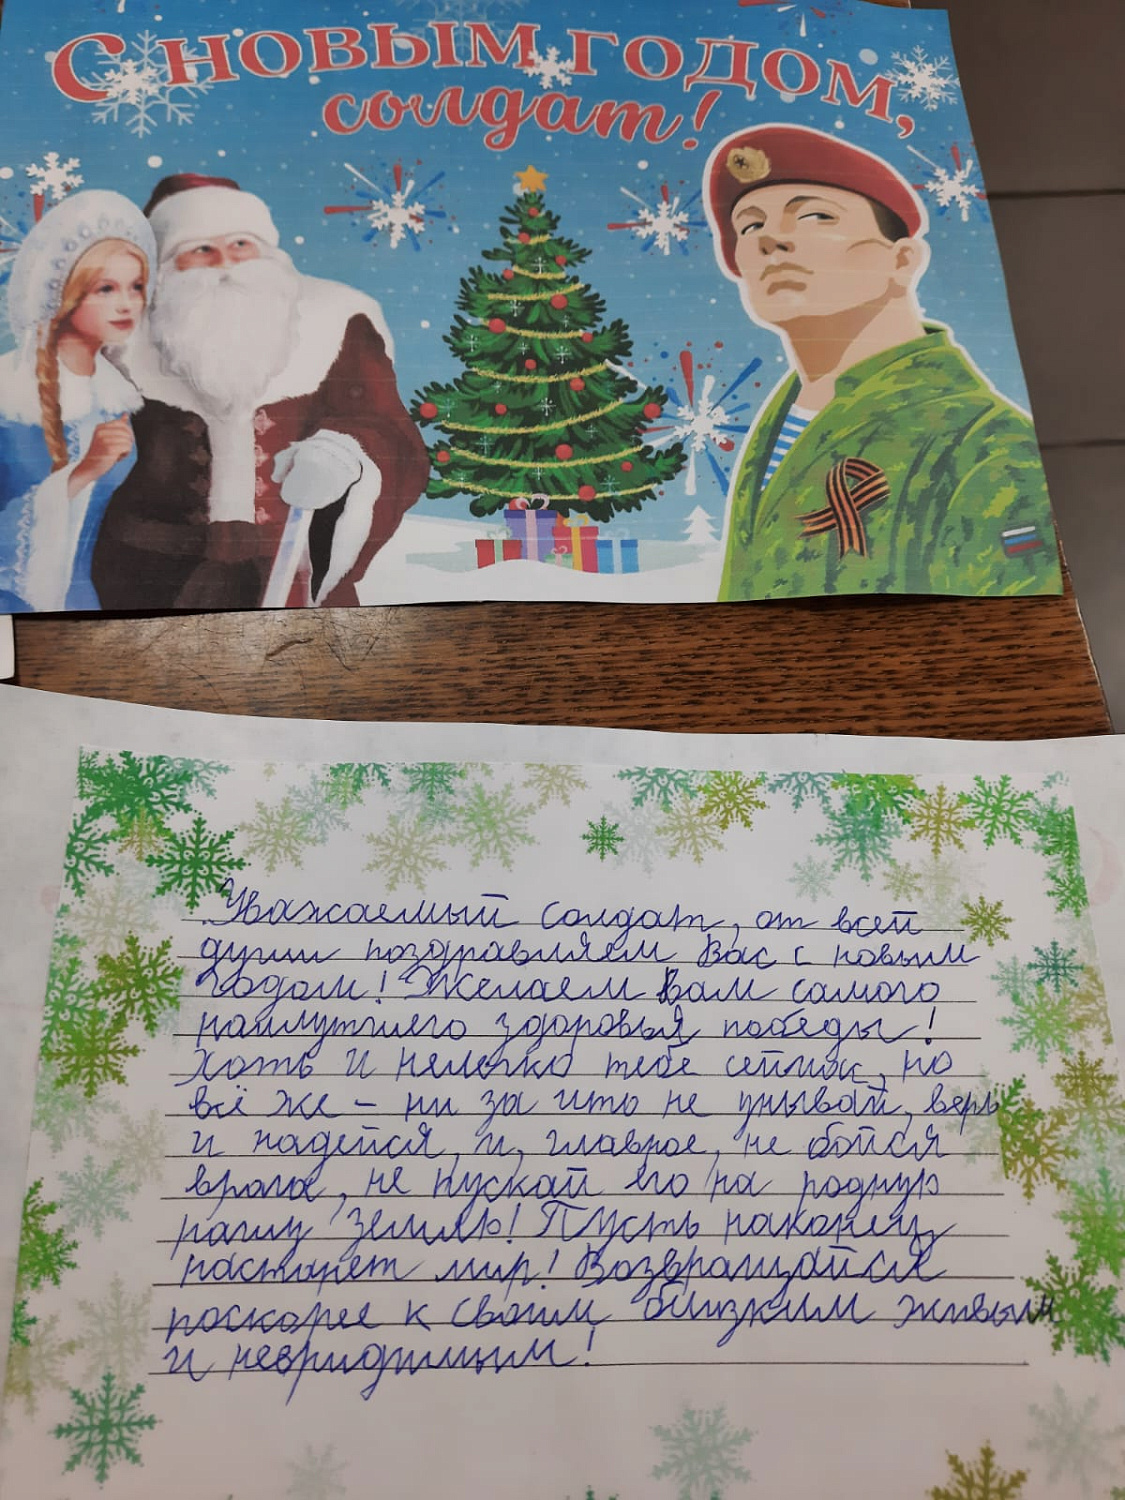 С НОВЫМ ГОДОМ,
солдат!
Уважаемый солдат, от всей
души поздравляем Вас с новым
Годом! Желаем Вам самого
наилутшего здоровья победы!
Хоть и нелегко тебе сейчас, но
всё же – ни за что не унывай, верь
и надейся, и, главное, не бойся
врага, не пускай его на родную
нашу землю! Пусть наконец
настанет мир! Возвращайся
поскорее к своим близким живым
и невридимым!